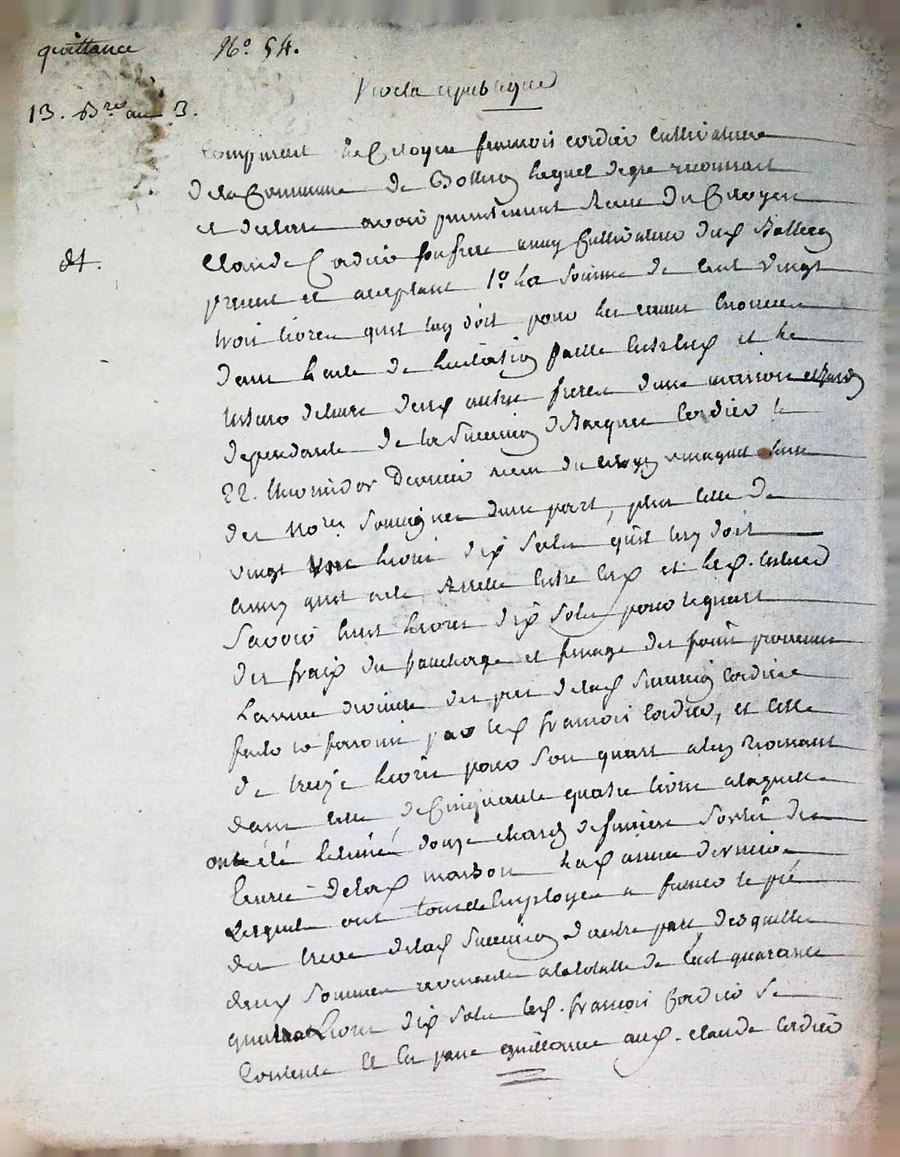 quittance N°. 54.
13. Bre an 3.
Vive la republique
Comparut le Citoyen francois cordier Cultivateur
de la Commune de lequel de gre reconnait
et declare avoir presentement Receu du Citoyen
Claude Cordier son frere aussy Cultivateur dud
present et acceptant 1° La somme de Cent vingt
trois livres quil luy doit pour les causes Enoncees
dans lacte de licitation passé Entre Eux et
deux autres freres dune maison
dependante de la Succession de Cordier le
22. thermidor Dernier receu du
des Nores Soussignes dune part, plus Celle de
vingt livres dix sols quil luy doit
aussy arretté Entre Eux et
Savoir huit livres dix Sols pour le quart
des fraix du fauchage et fenage des foins provenus
Lannée derniere des prés de lad Succession Cordier
par led francois Cordier, et Celle
de treize livres pour Son quart a luy Revenant
dans Celle de Cinquante quatre livres a laquelle
ont été Estimés douze chards de fumier Sortis de
lecurie de lad maison lad année derniere
Lesquels ont tous été Employés a fumer
des terres de lad Succession d'autre part, desquelles
deux Sommes revenantes a la totalle de Cent quarante
quatre Livres dix sols led. francois Cordier Se
Contente Et En passe quittance aud. Claude Cordier